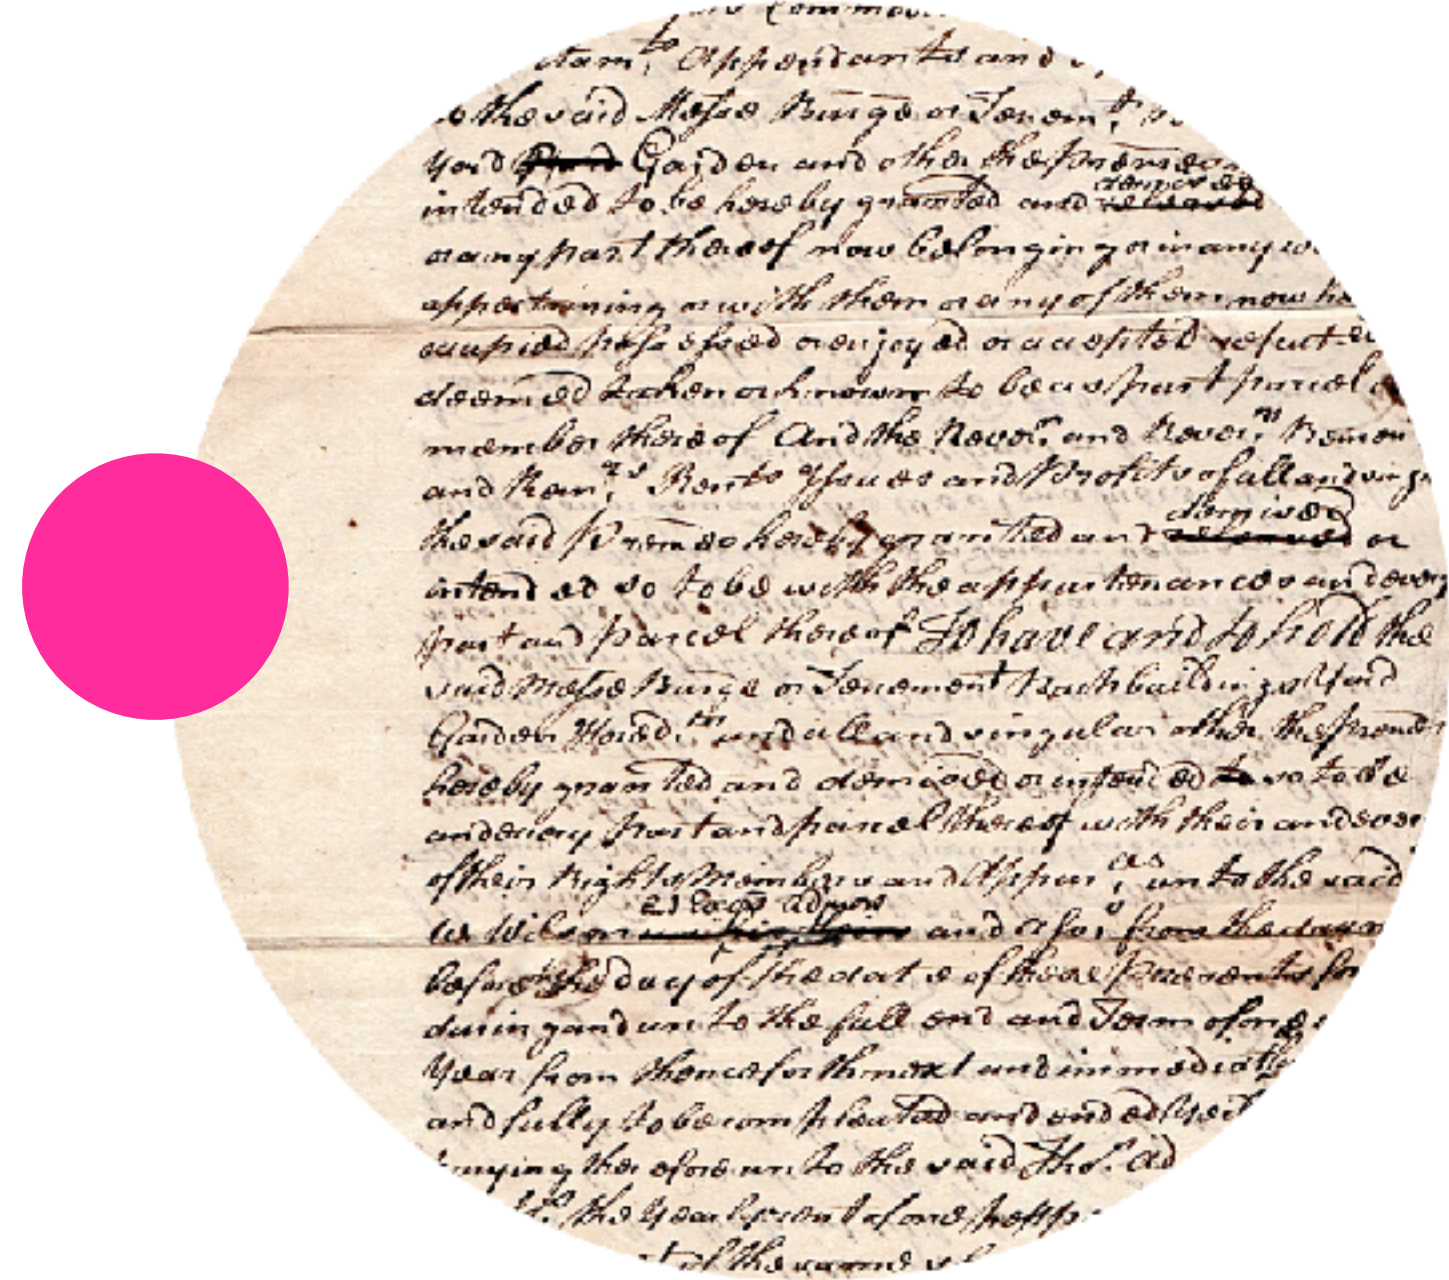 Commo
Appendants and
to the said Messe Burge or Tenemt.
Yard Garden and other the premes
intended to be hereby granted and demised released
or any part thereof now belonging or in any w
appertaining or with them or any of them now he
occupied possessed or enjoyed or accepted reputed
deemed taken or known to be as part parcel
member thereof And the Rever. and Rever.ns Remen
and Rem.rs Rents Yssues and Profits of all and sing
the said Premes hereby granted and demised released or
intended so to be with the appurtenances and every
part and parcel thereof To have and to hold the
said Messe Burge or Tenement Backbuildings Yard
Garden Hered.ts and all and singular other the preme
hereby granted and demised or intended to so to be
and every part and parcel thereof with their and ever
of their Rights Members and Appur.ces unto the said
W Wilson es Exors Admors and asss. from the day
before the day of the date of these Presents for
during and unto the full end and Term of one
Year from thenceforth next and immediat
and fully to be compleated and ended
paying therefore unto the said Thos. Ad
the Year Rent of one pepp
of the same